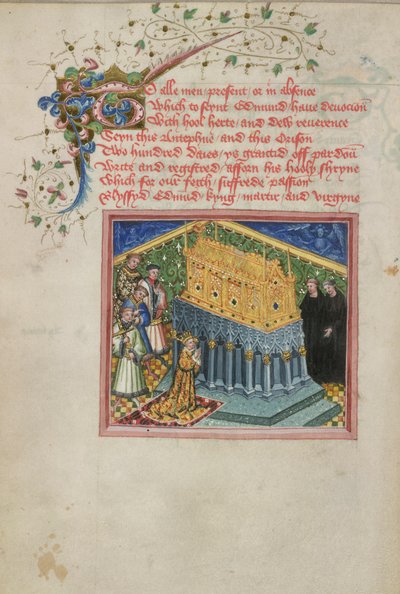 To alle men present or in absence
Which to seynt Edmund haue deuocioun
With hool herte and dew reuerence
Seyn this Antephne and this Orison
Two hundred daies ys grantid off pardoun
Write and registred afforn his hooly shryne
Which for our feith suffrede passioun
Blyssyd Edmund kyng martir and virgyne